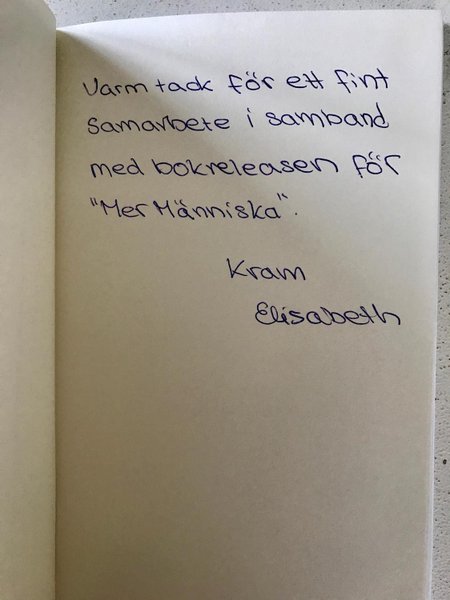 Varm tack för ett fint
samarbete i samband
med bokreleasen för
"Mer Människa".
Kram
Elisabeth